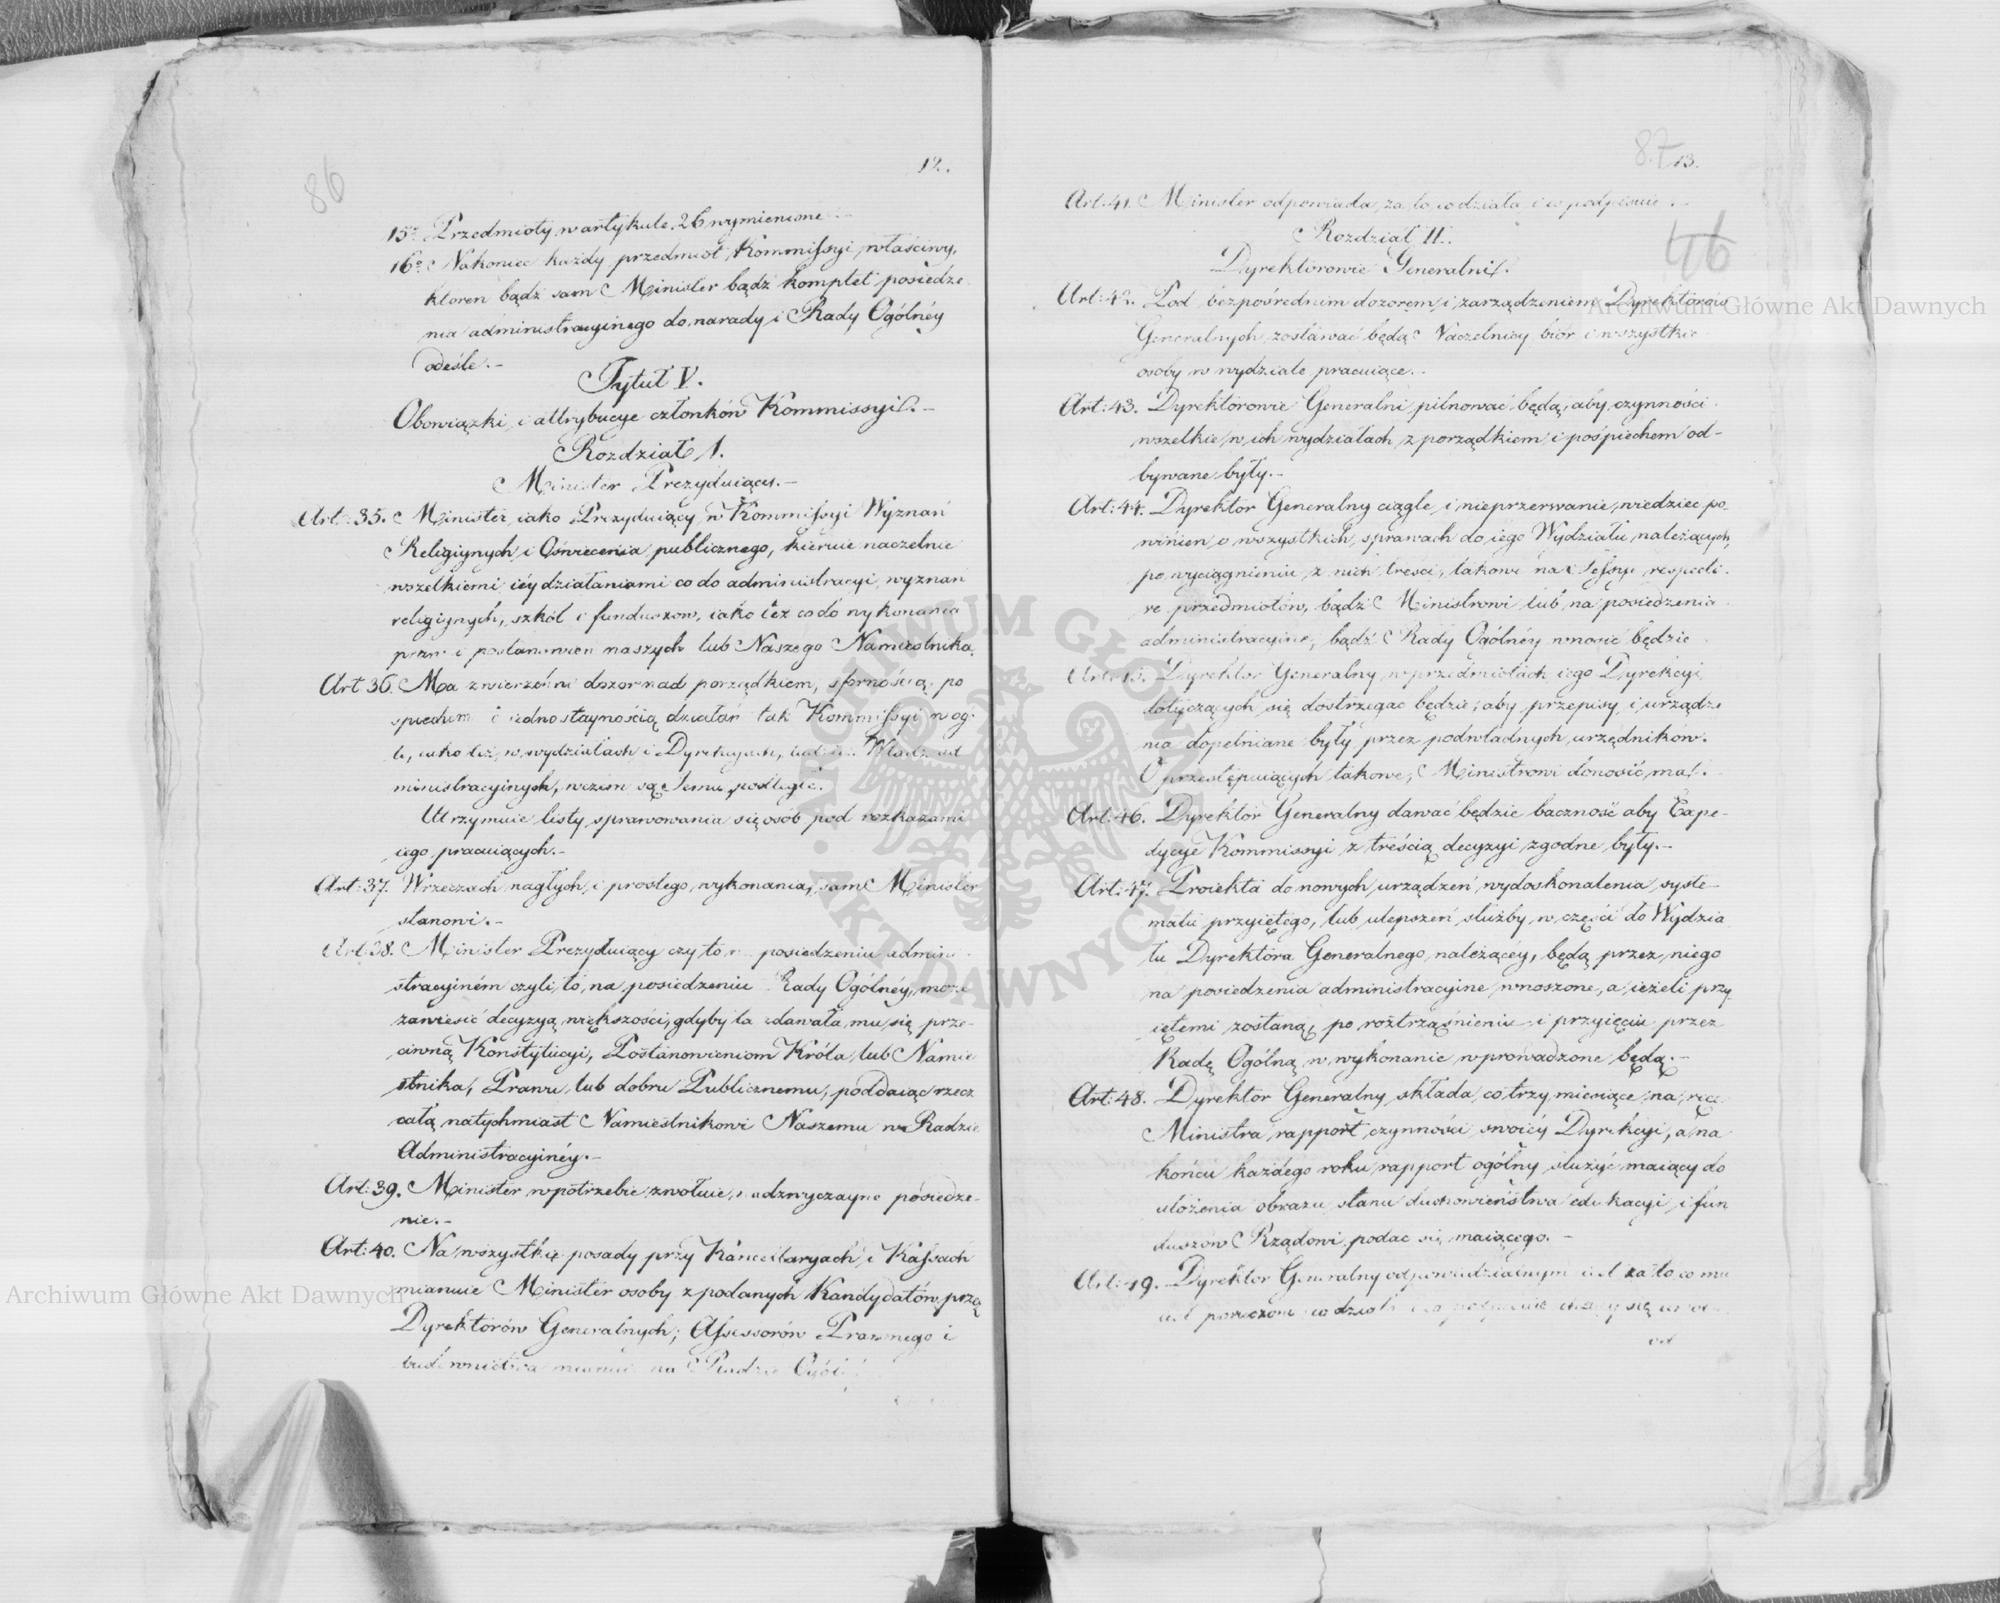 86
12.
15º Przedmioty w artykule 26 wymienione
16º Nakoniec każdy przedmiot Kommissyi właściwy,
ktoren bądź sam Minister bądź komplet posiedze
nia administracyinego do narady i Rady Ogólnéy
odeśle.-
Tytuł V.
Obowiązki i attrybucye członków Kommissyi.-
Rozdział 1.
Minister Prezyduiący.-
Art: 35. Minister iako Prezyduiący w Kommissyi Wyznań
Religiynych i Oświecenia publicznego, kieruie naczelnie
wszelkiemi iéy działaniami co do administracyi wyznań
religiynych, szkół i funduszow, iako też co do wykonania
praw i postanowien naszych lub Naszego Namiestnika.
Art 36. Ma zwierzchni dozor nad porządkiem, sfornością, po
spiechem i iednostaynością działań tak Kommissyi w og-
le, iako też w wydziałach i Dyrekcyach, Władz ad
ministracyinych, wczem są Jemu podległe.
Utrzymuie listy sprawowania się osób pod rozkazami
iego pracuiących.-
Art: 37. W rzeczach nagłych i prostego wykonania, sam Minister
stanowi.-
Art: 38. Minister Prezyduiący czy to na posiedzeniu admini-
stracyiném czyli to, na posiedzeniu Rady Ogólnéy, może
zawiesić decyzyą większości, gdyby ta zdawała mu się prze-
ciwną Konstytucyi, Postanowieniom Króla, lub Namie
stnika, Prawu, lub dobru Publicznemu, poddaiąc rzecz
całą natychmiast Namiestnikowi Naszemu w Radzie
Administracyinéy.-
Art: 39. Minister w potrzebie zwołuie, nadzwyczayne posiedze-
nie.-
Art: 40. Na wszystkie posady przy Kancellaryach i Kassach
mianuie Minister osoby z podanych Kandydatów przez
Dyrektorów Generalnych; Assessorów Prawnego i
budownictwa mianuie na Radzie Ogól
87
13.
46
Art: 41. Minister odpowiada za to co działa i co podpisuie.-
Rozdział II.
Dyrektorowie Generalni.
Art: 42. Pod bezpośrednim dozorem i zarządzeniem Dyrektorów
Generalnych zostawać będą Naczelnicy biór i wszystkie
osoby w wydziale pracuiące.-
Art: 43. Dyrektorowie Generalni pilnować będą, aby czynności
wszelkie w ich wydziałach z porządkiem i pośpiechem od-
bywane były.-
Art: 44. Dyrektor Generalny ciągle i nieprzerwanie wiedzieć po-
winien o wszystkich sprawach do iego Wydziału należących,
po wyciągnieniu z nich treści, takowe na Sessye respecti-
ve przedmiotów, bądź Ministrowi lub na posiedzenia
administracyine, bądź Rady Ogólnéy wnosić będzie
Art: 45. Dyrektor Generalny w przedmiotach iego Dyrekcyi
dotyczących się dostrzegać będzie, aby przepisy i urządze
nia dopełniane były przez podwładnych urzędników.
O przestępuiących takowe, Ministrowi donosić ma.
Art: 46. Dyrektor Generalny dawać będzie baczność aby Expe-
dycye Kommissyi z treścią decyzyi zgodne były.-
Art: 47. Proiekta do nowych urządzeń wydoskonalenia syste-
matu przyiętego, lub ulepszeń służby w części do Wydzia
łu Dyrektora Generalnego należącéy, będą przez niego
na posiedzenia administracyine wnoszone, a ieżeli przy
iętemi zostaną, po roztrząśnieniu i przyięciu przez
Radę Ogólną w wykonanie wprowadzone będą.-
Art: 48. Dyrektor Generalny składa co trzy miesiące na ręce
Ministra rapport czynności swoiéy Dyrekcyi, a na
końcu każdego roku rapport ogólny służyć maiący do
ułożenia obrazu stanu duchowieństwa edukacyi i fun
duszów Rządowi podać się maiącego.-
Art: 49. Dyrektor Generalny odpowiedzialnym iest za to co mu
iest poruczone co działa
od
Archiwum Główne Akt Dawnych
Archiwum Główne Akt Dawnych
ARCHIWUM GŁÓWNE AKT DAWNYCH